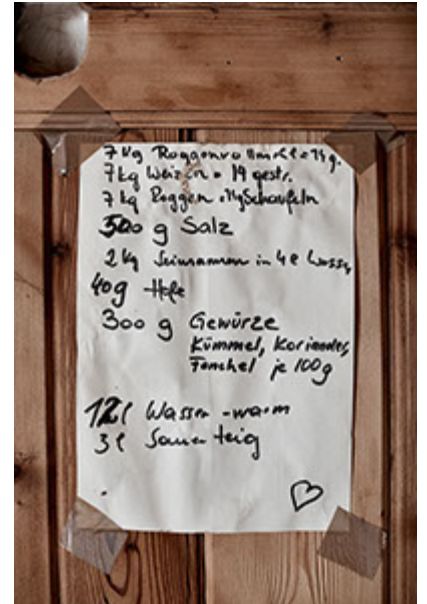 7 kg Roggenvollmehl = 19 g.
7 kg Weizen = 19 gestr.
7 kg Roggen = 19 Schaufeln
500 g Salz
2 kg Leinsamen in 4 l Wasser
40 g Hefe
300 g Gewürze
Kümmel, Koriander,
Fenchel je 100 g
12 l Wasser - warm
3 l Sauerteig